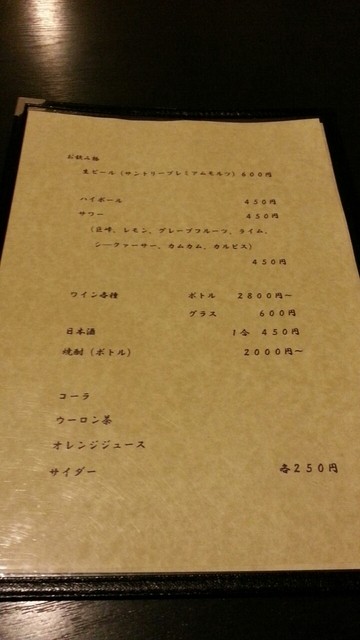 お飲み物
生ビール（サントリープレミアムモルツ）６００円
ハイボール ４５０円
サワー ４５０円
（巨峰、レモン、グレープフルーツ、ライム、
シークァーサー、カムカム、カルピス）
４５０円
ワイン各種 ボトル ２８００円～
グラス ６００円
日本酒 １合 ４５０円
焼酎（ボトル） ２０００円～
コーラ
ウーロン茶
オレンジジュース
サイダー 各２５０円